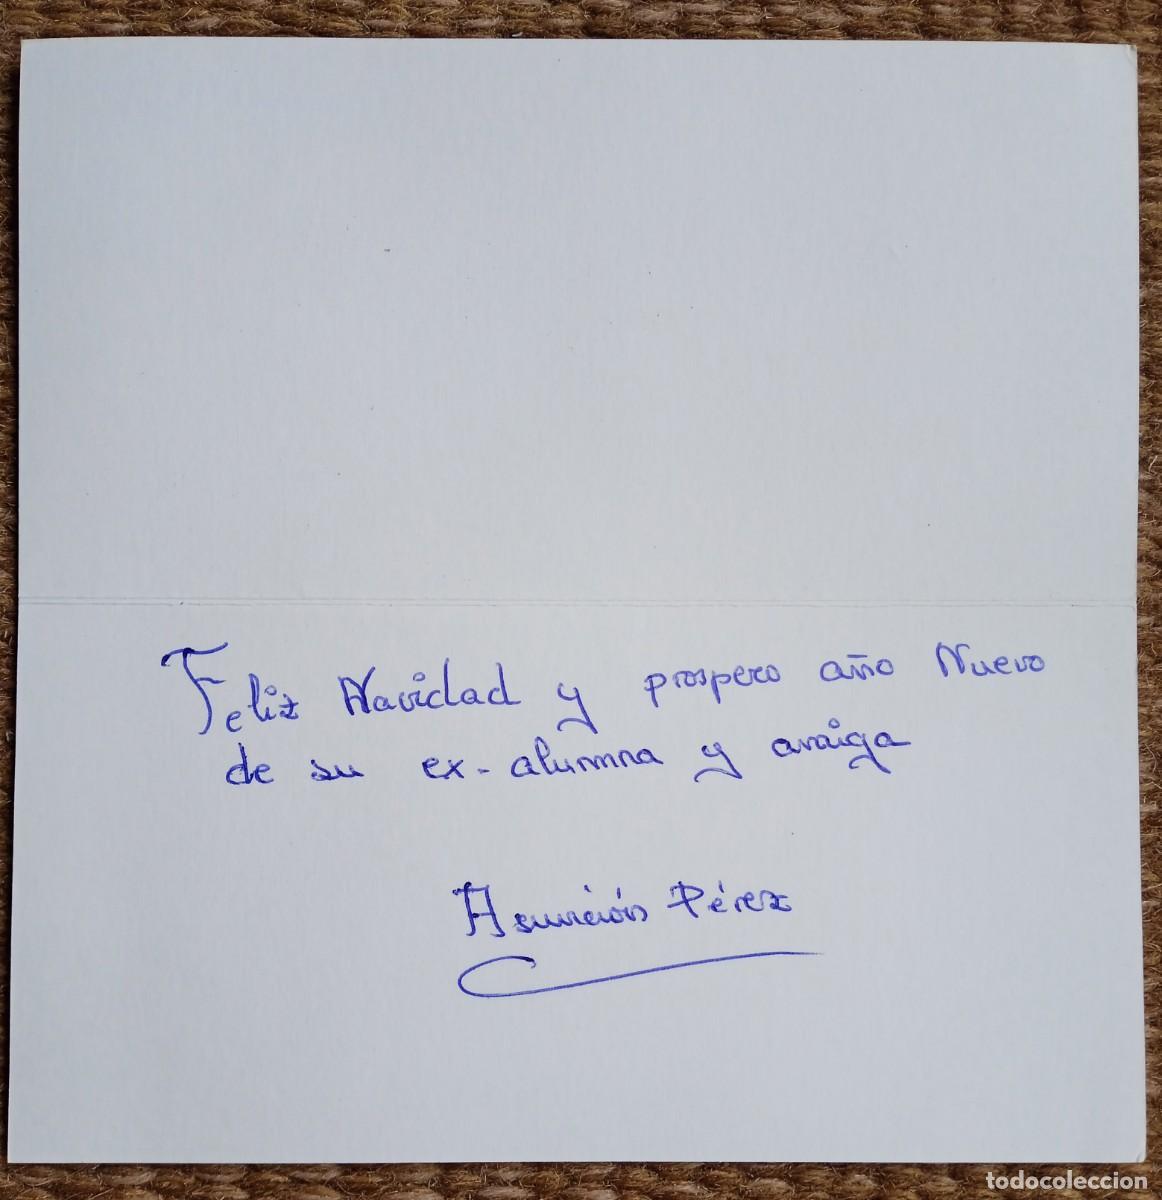 Feliz Navidad y prospero año Nuevo
de su ex-alumna y amiga
Asunción Pérez
todocoleccion